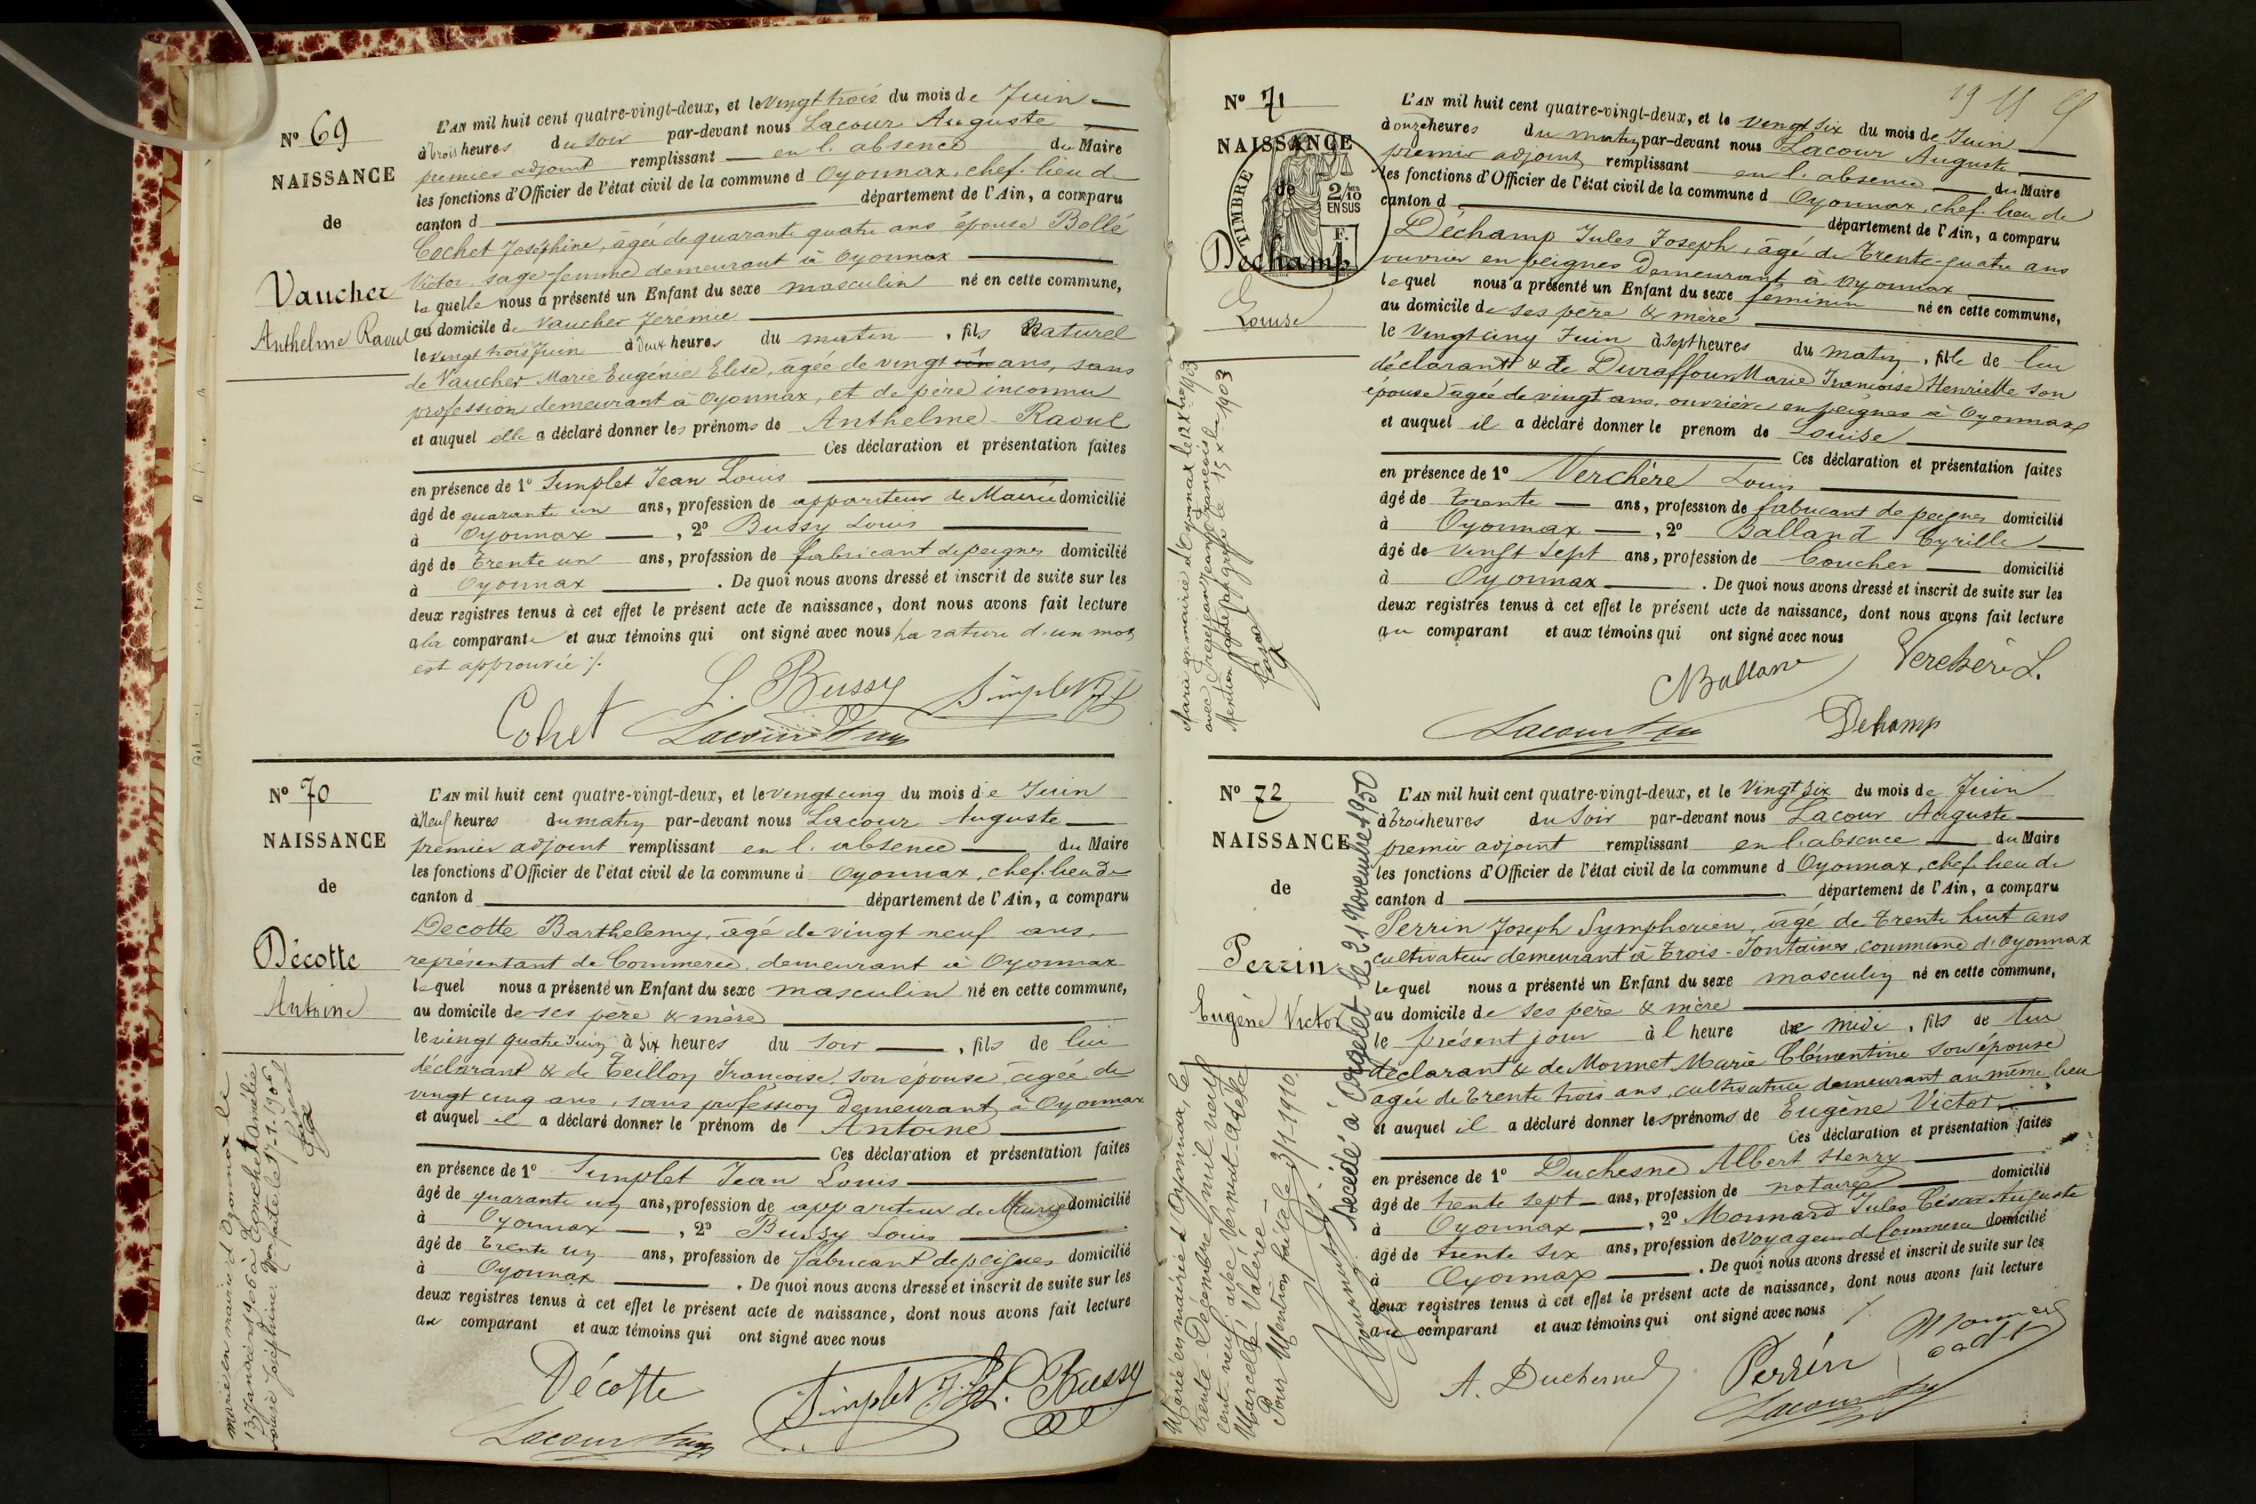 N° 69
NAISSANCE
de
Vaucher
Anthelme Raoul
L'AN mil huit cent quatre-vingt-deux, et le Vingt trois du mois de Juin
à trois heures du soir par-devant nous Lacour Auguste
premier adjoint remplissant en l'absence du Maire
les fonctions d'Officier de l'état civil de la commune d Oyonnax, chef-lieu de
canton d département de l'Ain, a comparu
Cochet Joséphine, âgée de quarante quatre ans épouse Bollé
Victor, sage-femme demeurant à Oyonnax
la quelle nous a présenté un Enfant du sexe masculin né en cette commune,
au domicile de Vaucher Jeremie
le vingt trois Juin à deux heures du matin, fils Naturel
de Vaucher Marie Eugénie Elise, âgée de vingt ans, sans
profession demeurant à Oyonnax, et de père inconnu
et auquel elle a déclaré donner les prénoms de Anthelme-Raoul
Ces déclaration et présentation faites
en présence de 1° Simplet Jean Louis
âgé de quarante un ans, profession de appariteur de Mairie domicilié
à Oyonnax, 2° Bussy Louis
âgé de trente un ans, profession de fabricant de peignes domicilié
à Oyonnax. De quoi nous avons dressé et inscrit de suite sur les
deux registres tenus à cet effet le présent acte de naissance, dont nous avons fait lecture
à la comparante et aux témoins qui ont signé avec nous la rature d'un mot
est approuvée ./.
L. Bussy Simplet J L
Cohet Lacour
N° 70
NAISSANCE
de
Décotte
Antoine
marié en mairie d'Oyonnax le
13 Janvier 1906 à
Louise Joséphine. Mention faite le 1906
L'AN mil huit cent quatre-vingt-deux, et le vingt cinq du mois de Juin
à Neuf heures du matin par-devant nous Lacour Auguste
premier adjoint remplissant en l'absence du Maire
les fonctions d'Officier de l'état civil de la commune d Oyonnax, chef-lieu de
canton d département de l'Ain, a comparu
Decotte Barthelemy, âgé de vingt neuf ans,
représentant de Commerce, demeurant à Oyonnax
lequel nous a présenté un Enfant du sexe masculin né en cette commune,
au domicile de ses père & mère
le vingt quatre Juin à Six heures du soir, fils de lui
déclarant & de Teillon Françoise, son épouse, âgée de
vingt cinq ans, sans profession demeurant à Oyonnax
et auquel il a déclaré donner le prénom de Antoine
Ces déclaration et présentation faites
en présence de 1° Simplet Jean Louis
âgé de quarante un ans, profession de appariteur de Mairie domicilié
à Oyonnax, 2° Bussy Louis
âgé de trente un ans, profession de fabricant de peignes domicilié
à Oyonnax. De quoi nous avons dressé et inscrit de suite sur les
deux registres tenus à cet effet le présent acte de naissance, dont nous avons fait lecture
au comparant et aux témoins qui ont signé avec nous
Décotte Simplet J. L. L. Bussy
Lacour
N° 71
NAISSANCE
de
TIMBRE
2/10
EN SUS
F. 1
Déchamp
Louise
Marié en mairie d'Oyonnax le 12 Xbre 1903
Mention le 15 Xbre 1903
L'AN mil huit cent quatre-vingt-deux, et le vingt six du mois de Juin
à onze heures du matin par-devant nous Lacour Auguste
premier adjoint remplissant en l'absence du Maire
les fonctions d'Officier de l'état civil de la commune d Oyonnax, chef-lieu de
canton d département de l'Ain, a comparu
Déchamp Jules Joseph, âgé de trente-quatre ans
ouvrier en peignes demeurant à Oyonnax
lequel nous a présenté un Enfant du sexe féminin né en cette commune,
au domicile de ses père & mère
le Vingt cinq Juin à sept heures du matin, fille de lui
déclarant & de Duraffour Marie Françoise Henriette son
épouse âgée de vingt ans, ouvrière en peignes à Oyonnax
et auquel il a déclaré donner le prenom de Louise
Ces déclaration et présentation faites
en présence de 1° Verchère Louis
âgé de trente ans, profession de fabricant de peignes domicilié
à Oyonnax, 2° Balland Cyrille
âgé de vingt sept ans, profession de Coucher domicilié
à Oyonnax. De quoi nous avons dressé et inscrit de suite sur les
deux registres tenus à cet effet le présent acte de naissance, dont nous avons fait lecture
au comparant et aux témoins qui ont signé avec nous
Verchère L.
Lacour Dehamp
N° 72
NAISSANCE
de
Perrin
Eugéne Victor
Marié en mairie d'Oyonnax, le
trente Décembre mil neuf
cent neuf avec Adèle
Valérie
Pour Mention faite le 3/1 1910.
Décédé à Orgelet le 21 Novembre 1950
L'AN mil huit cent quatre-vingt-deux, et le Vingt six du mois de Juin
à trois heures du Soir par-devant nous Lacour Auguste
premier adjoint remplissant en l'absence du Maire
les fonctions d'Officier de l'état civil de la commune d Oyonnax, chef-lieu de
canton d département de l'Ain, a comparu
Perrin Joseph Symphorien, âgé de trente huit ans
cultivateur demeurant à Trois-Fontaines, commune d'Oyonnax
lequel nous a présenté un Enfant du sexe masculin né en cette commune,
au domicile de ses père & mère
le présent jour à l heure de midi, fils de lui
déclarant & de Monnet Marie Clémentine son épouse
agée de trente trois ans, cultivatrice demeurant au même lieu
et auquel il a déclaré donner les prénoms de Eugène Victor
Ces déclaration et présentation faites
en présence de 1° Duchesne Albert Henry
âgé de trente sept ans, profession de notaire domicilié
à Oyonnax, 2° Monnard Jules César Auguste
âgé de trente six ans, profession de Voyageur de Commerce domicilié
à Oyonnax. De quoi nous avons dressé et inscrit de suite sur les
deux registres tenus à cet effet le présent acte de naissance, dont nous avons fait lecture
au comparant et aux témoins qui ont signé avec nous
A. Duchesne Perrin
Lacour